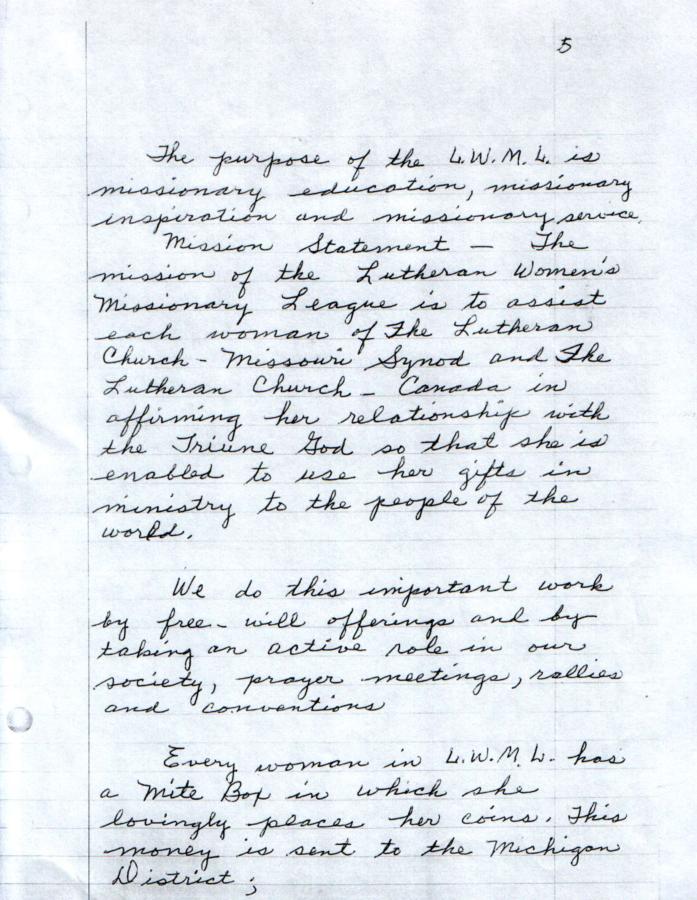 5
The purpose of the L.W.M.L. is
missionary education, missionary
inspiration and missionary service.
Mission Statement – The
mission of the Lutheran Women's
Missionary League is to assist
each woman of The Lutheran
Church – Missouri Synod and The
Lutheran Church – Canada in
affirming her relationship with
the Triune God so that she is
enabled to use her gifts in
ministry to the people of the
world.
We do this important work
by free-will offerings and by
taking an active role in our
society, prayer meetings, rallies
and conventions
Every woman in L.W.M.L. has
a Mite Box in which she
lovingly places her coins. This
money is sent to the Michigan
District;